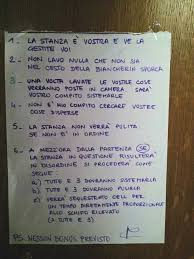 1 - LA STANZA E' VOSTRA E VE LA
GESTITE VOI
2 - NON LAVO NULLA CHE NON SIA
NEL CESTO DELLA BIANCHERIA SPORCA
3 - UNA VOLTA LAVATE LE VOSTRE COSE
VERRANNO POSTE IN CAMERA, SARA'
VOSTRO COMPITO SISTEMARLE
4 - NON E' MIO COMPITO CERCARE VOSTRE
COSE DISPERSE
5 - LA STANZA NON VERRÀ PULITA
SE NON E' IN ORDINE
6 - A MEZZ'ORA DALLA PARTENZA SE
LA STANZA IN QUESTIONE RISULTERA'
IN DISORDINE SI PROCEDERÀ COME
SEGUE
a) TUTTE E 3 DOVRANNO SISTEMARLA
b) TUTTE E 3 DOVRANNO PULIRLA
c) VERRA' SEQUESTRATO CELL PER
UN TEMPO DIRETTAMENTE PROPORZIONALE
ALLO SCHIFO RILEVATO
(A TUTTE E 3)
PS. NESSUN BONUS PREVISTO